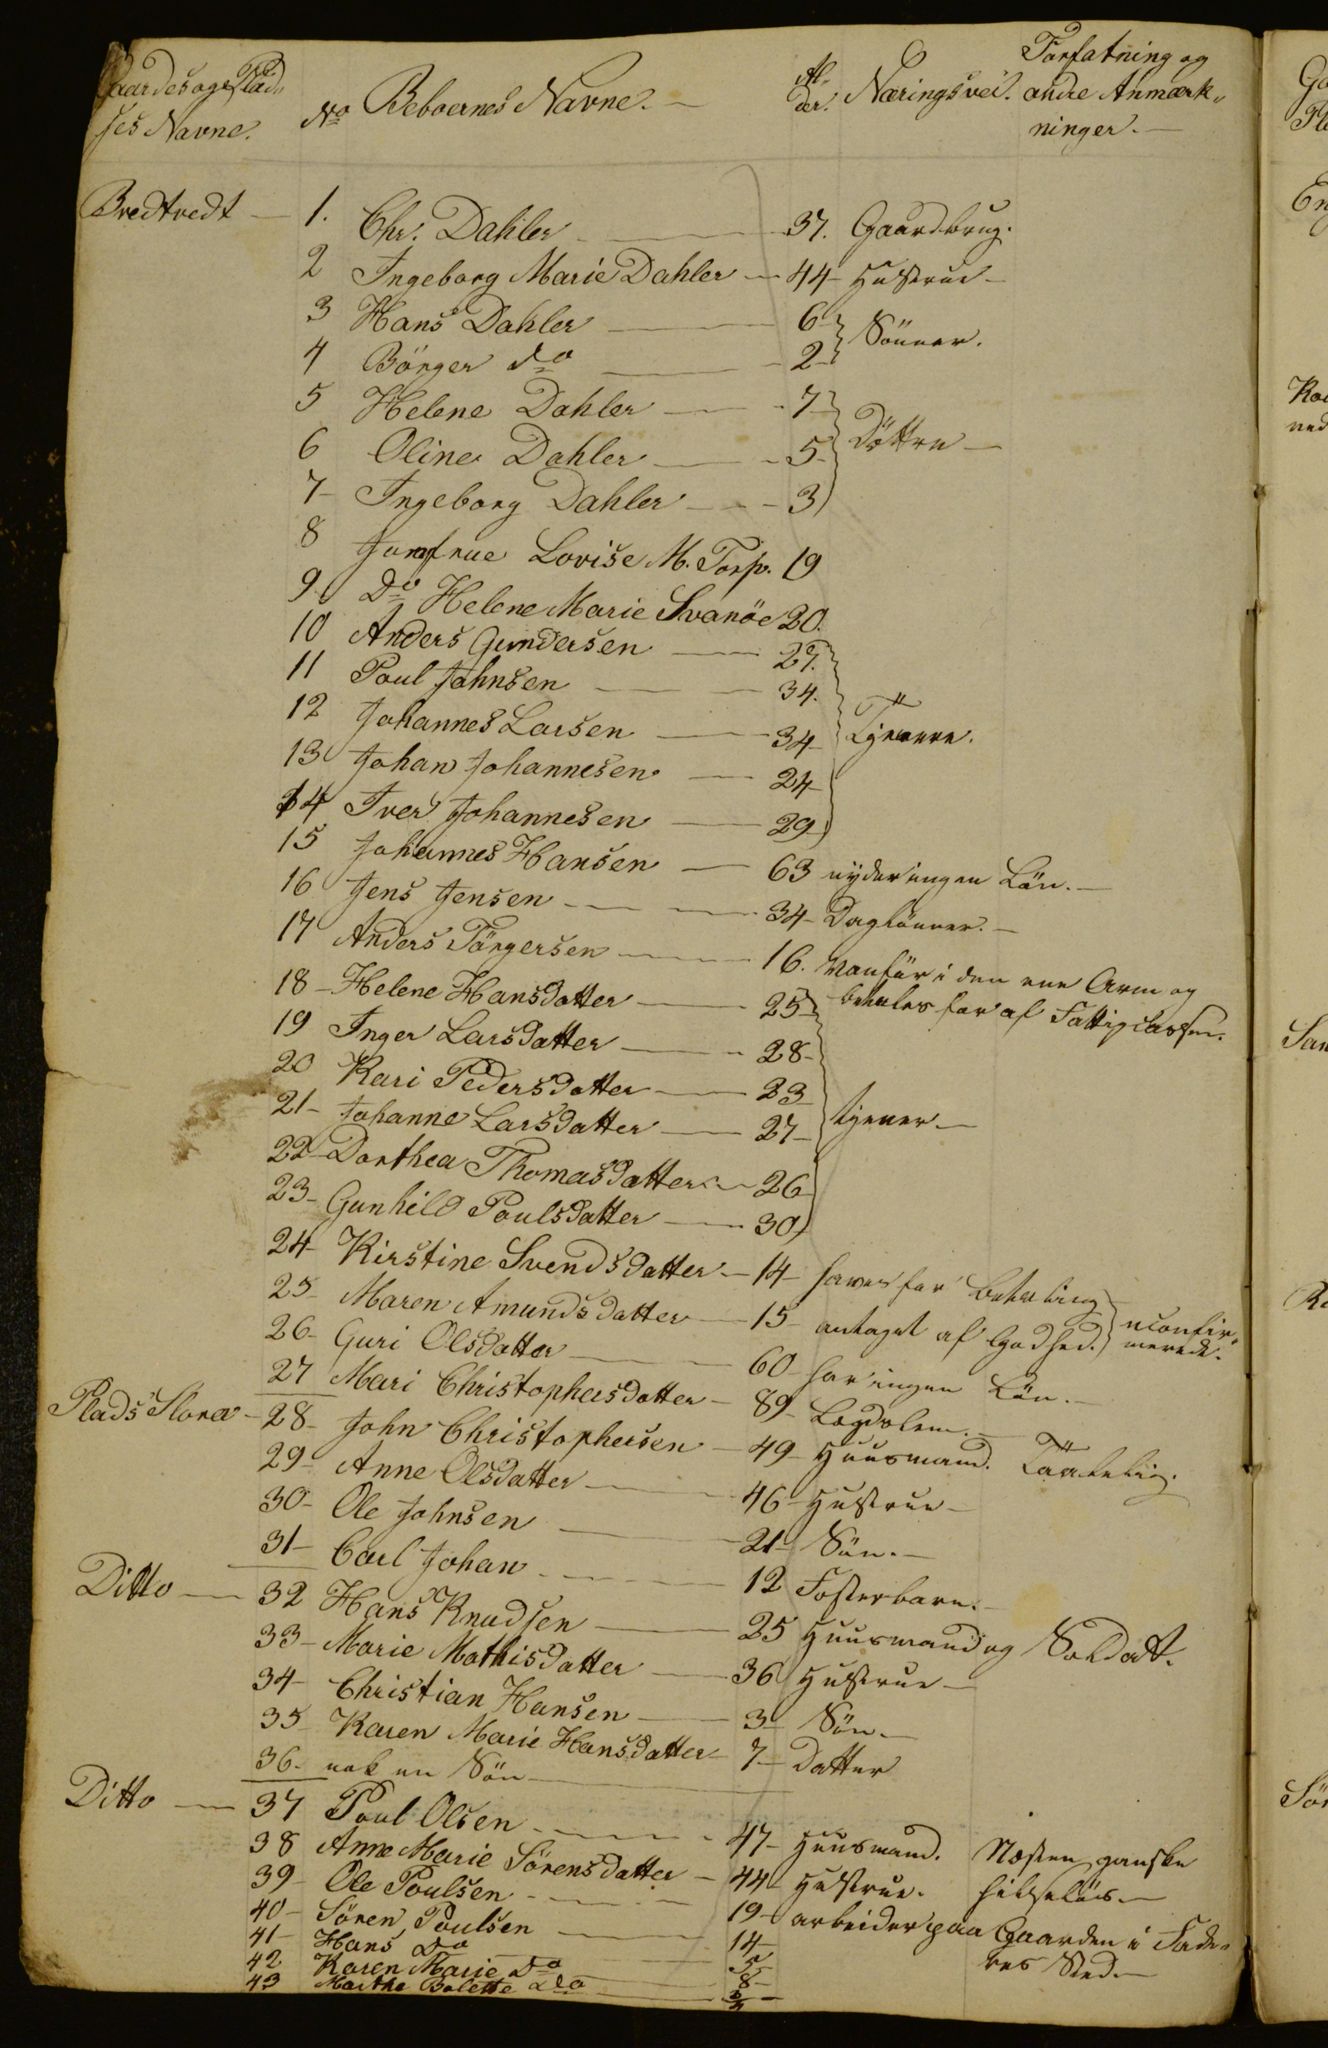 Gaardes og Plad-
ses Navne. No Beboernes Navne. Al-
der. Næringsvei. Forfatning og
andre Anmærk-
ninger.
Bredtvedt 1. Chr. Dahler 37. Gaardbrug.
2 Ingeborg Marie Dahler 44 Hustrue
3 Hans Dahler 6 Sönner.
4 Börger do 2
5 Helene Dahler 7 Döttre
6 Oline Dahler 5
7 Ingeborg Dahler 3
8 Jomfrue Lovise M. Torp. 19
9. Do Helene Marie Svanöe 20.
10 Anders Gundersen 27.
11 Poul Johnsen 34.
12 Johannes Larsen 34 Tjenere.
13 Johan Johannesen 24
14 Iver Johannesen 29
15 Johannes Hansen 63 nyder ingen Lön.
16 Jens Jensen 34 Daglönner.
17 Anders Törgersen 16. Vanför i den ene Arm og
betales for af Fattigcassen.
18 Helene Hansdatter 25
19 Inger Larsdatter 28
20 Kari Pedersdatter 23
21 Johanne Larsdatter 27 tjener
22 Dorthea Thomasdatter 26
23 Gunhild Poulsdatter 30
24 Kirstine Svendsdatter 14 haves for Betaling
25 Maren Amundsdatter 15 antaget af Godhed. uconfir-
merede.
26 Guri Olsdatter 60 har ingen Lön.
27 Mari Christophersdatter 89 Lægdslem.
Plads Slora 28 John Christophersen 49 Huusmand. Taalelig.
29 Anne Olsdatter 46 Hustrue
30 Ole Johnsen 21 Sön.
31 Carl Johan 12 Fosterbarn.
Ditto 32 Hans Knudsen 25 Huusmand og Soldatt.
33 Marie Mathisdatter 36 Hustrue
34 Christian Hansen 3 Sön.
35 Karen Marie Hansdatter 7 Datter
36. nok en Sön
Ditto 37 Poul Olsen 47 Huusmand. Næsten ganske
helselös.
38 Anne Marie Sörensdatter 44 Hustrue.
39 Ole Poulsen 19 arbeider paa Gaarden i Fade-
rens Sted.
40 Sören Poulsen 14
41 Hans Do 5
42 Karen Marie Do 8
43 Marthe Bolette Do
Ga
Pl
En
ved
San
Sör